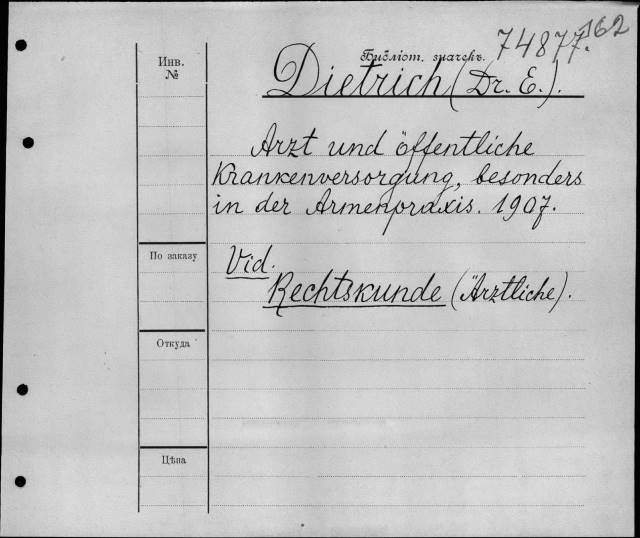 74877.162
Библіот. значекъ.
Инв.
№
Dietrich (Dr. E.).
Arzt und öffentliche
Krankenversorgung, besonders
in der Armenpraxis. 1907.
По заказу
Vid.
Rechtskunde (Ärztliche).
Откуда
Цѣна